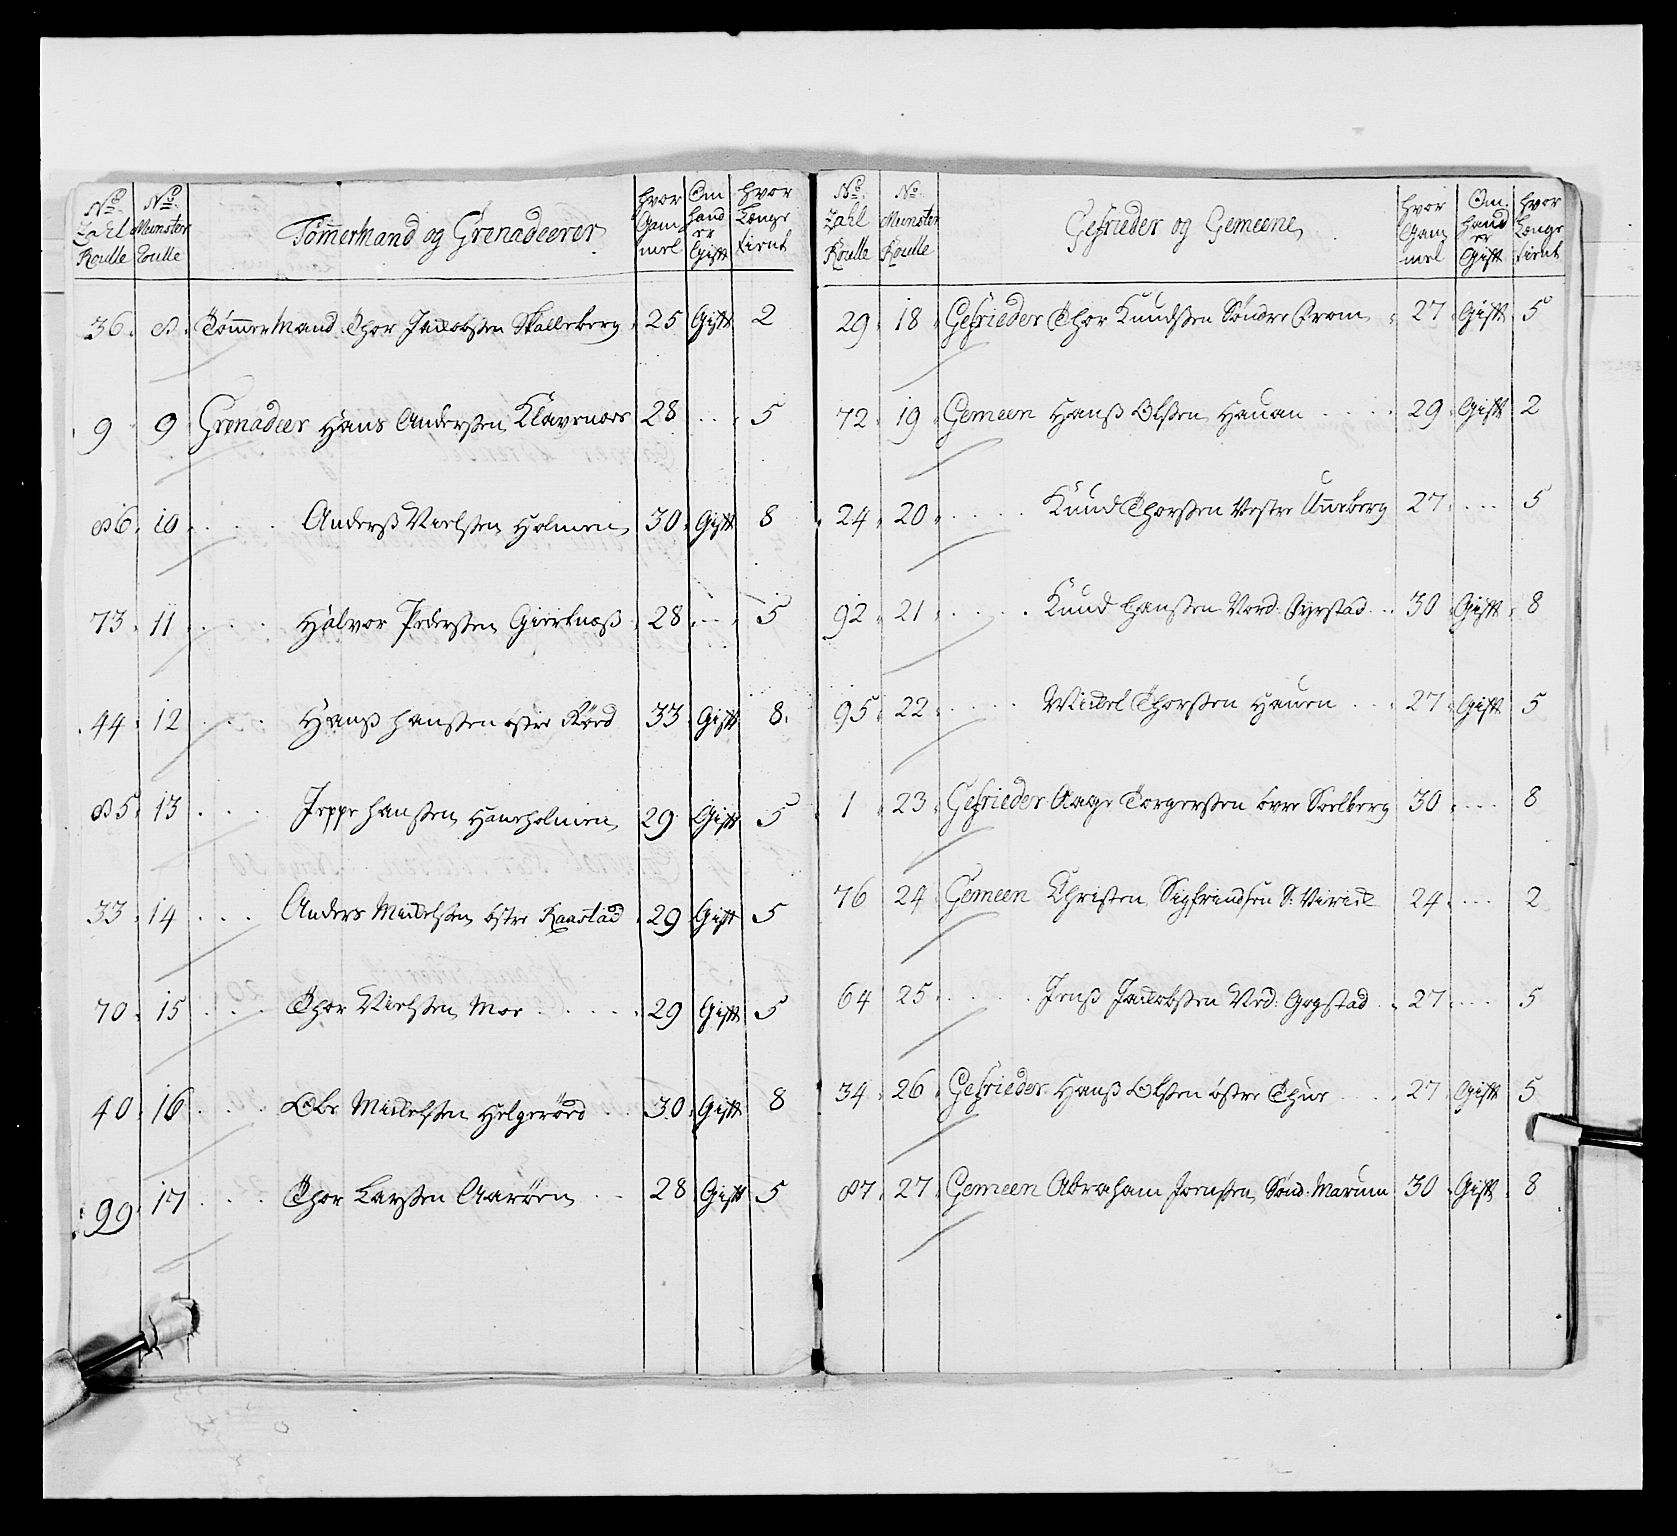 No. Zahl Roulle | No. Mönster Roulle | Tömmermand og Grenadeerer | hvor Gammel | Om hand er Gift | hvor Længe tient
36. 8. Tömmer Mand Thor Jacobsen Skalleberg 25 Gift 2
9 9 Grenadeer Hans Andersen Klavenæs 28 . . . 5
86. 10 . . . . Anderss Nielsen Holmen 30. Gift 8
73. 11 . . . . Halvor Pedersen 28 . . . 5
44. 12 . . . Hanss Hansen östre Röed 33 Gift 8.
85. 13 . . . Jeppe Hansen Haneholmen 29 Gift 5
33. 14 . . . Anders Michelsen östre Raastad 29 Gift 5
70. 15 . . . Thor Nielsen Moe . . . . . 29 Gift 5
40. 16 . . . Ole Michelsen Helgeröed . . 30. Gift 8
99. 17 . . . Thor Larssen Aaröen . . 28 Gift 5
No. Zahl Roulle | No. Mönster Roulle | Gefrieder og Gemeene | hvor Gammel | Om hand er Gift | hvor Længe tient
29. 18. Gefrieder Thor Knudsen Söndre 27 Gift 5
72. 19. Gemeen Hanss Olsen Hauan . . . . 29 Gift 2
24. 20. . . . . . Knud Thorsen Vestre Unneberg 27 . . . 5
92. 21. . . . . . Knud Hansen Nord: 30 Gift 8
95. 22. . . . . . Michel Thorsen Hauen . . . 27 Gift 5
1. 23. Gefrieder Aage Torgersen övre Soelberg 30 . . . 8
76 24. Gemeen Christen Sigfrindsen S: Virick 24 . . . 2
64 25. . . . . . Jenss Jacobsen Nord: Gogstad . . 27 . . . 5
34. 26. Gefrieder Hanss Olsen östre Thur . . . . 27 Gift 5
87. 27. Gemeen Abraham Joensen Sönd: Marum 30 Gift 8